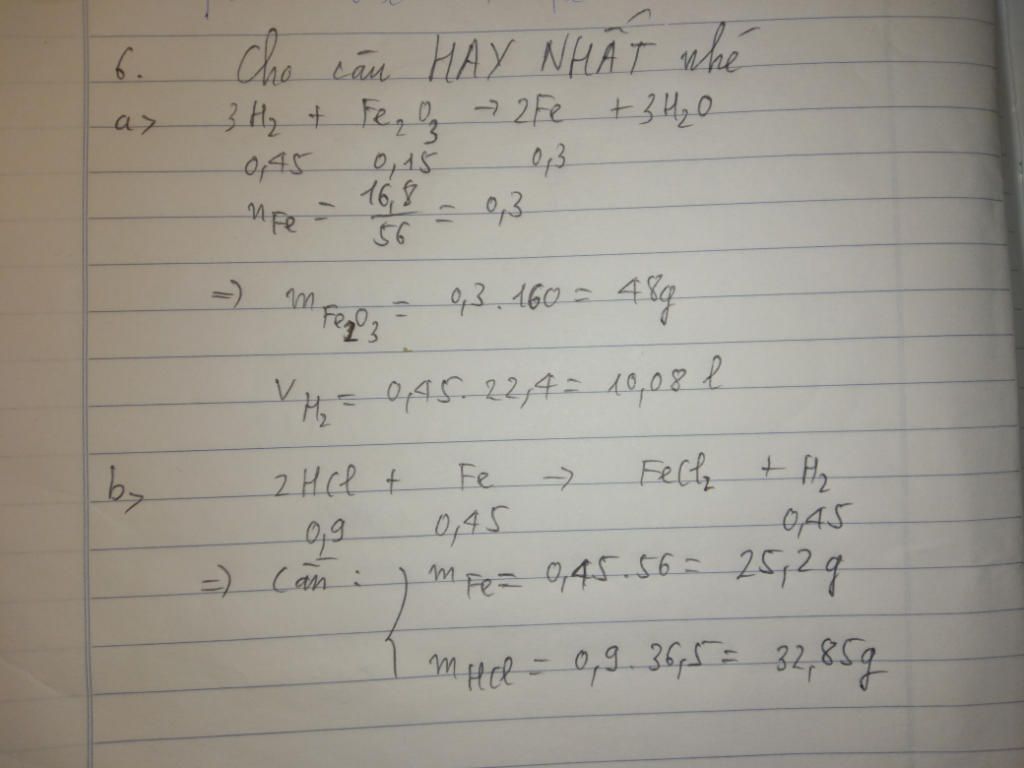 6. Cho căn HAY NHẤT nhé
a> 3H₂ + Fe₂O₃ → 2Fe + 3H₂O
0,45 0,15 0,3
n_Fe = 16,8/56 = 0,3
=> m_Fe₂O₃ = 0,3 . 160 = 48g
V_H₂ = 0,45 . 22,4 = 10,08 l
b> 2HCl + Fe → FeCl₂ + H₂
0,9 0,45 0,45
=> Cần : { m_Fe = 0,45 . 56 = 25,2g
m_HCl = 0,9 . 36,5 = 32,85g